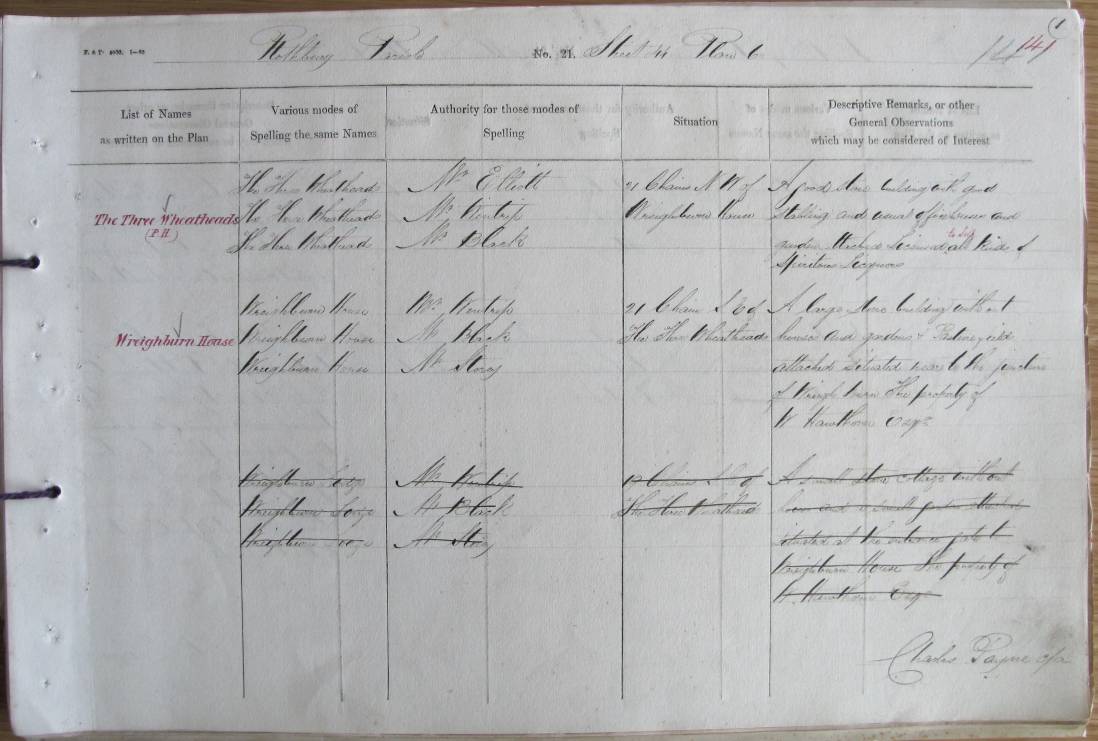 141
Rothbury Parish No. 21. Sheet 44 Plan 6
List of Names
as written on the Plan
Various modes of
Spelling the same Names
Authority for those modes of
Spelling
Situation
Descriptive Remarks, or other
General Observations
which may be considered of Interest
The Three Wheatheads
(P.H.)
The Three Wheatheads
The Three Wheatheads
The Three Wheathead
Mr Elliott
Mr Wintrip
Mr Black
21 Chains N.W of
Wreighburn House
A good stone building with good
stabling and usual offices and
garden attached Licensed to Sell all Kinds of
Spiritous Liquors
Wreighburn House
Wreighburn House
Wreighburn House
Wreighburn House
Mr Wintrip
Mr Black
Mr Storey
21 Chains S.E of
The Three Wheatheads
A large stone building with out
houses and gardens & Pasture field
attached situated near to the juncture
of Wreigh Burn The property of
W Hawthorn Esqr
Wreighburn Lodge
Wreighburn Lodge
Wreighburn Lodge
Mr Wintrip
Mr Black
Mr Storey
12 Chains S.E of
The Three Wheathead
A small stone Cottage with out
house and a small garden attached
situated at the entrance gate to
Wreighburn House The property of
W. Hawthorn Esqr
Charles Payne